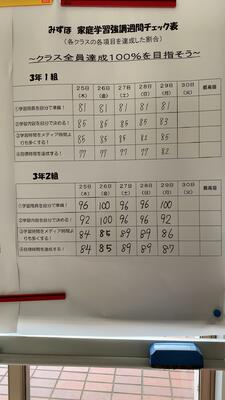 みずほ 家庭学習強調週間チェック表
(各クラスの各項目を達成した割合)
~クラス全員達成100%を目指そう~
3年1組
25日(木) 26日(金) 27日(土) 28日(日) 29日(月) 30日(火) 最高値
①学習用具を自分で準備! 81 81 81 81 81
②学習内容を自分で決める! 85 85 85 85 83
③学習時間をメディア時間よりも多くする! 85 85 85 82 85
④目標時間を達成する! 77 77 77 77 82
3年2組
25日(木) 26日(金) 27日(土) 28日(日) 29日(月) 30日(火) 最高値
①学習用具を自分で準備! 96 100 96 96 100
②学習内容を自分で決める! 92 100 96 96 92
③学習時間をメディア時間よりも多くする! 84 85 89 89 86
④目標時間を達成する! 84 85 89 89 87